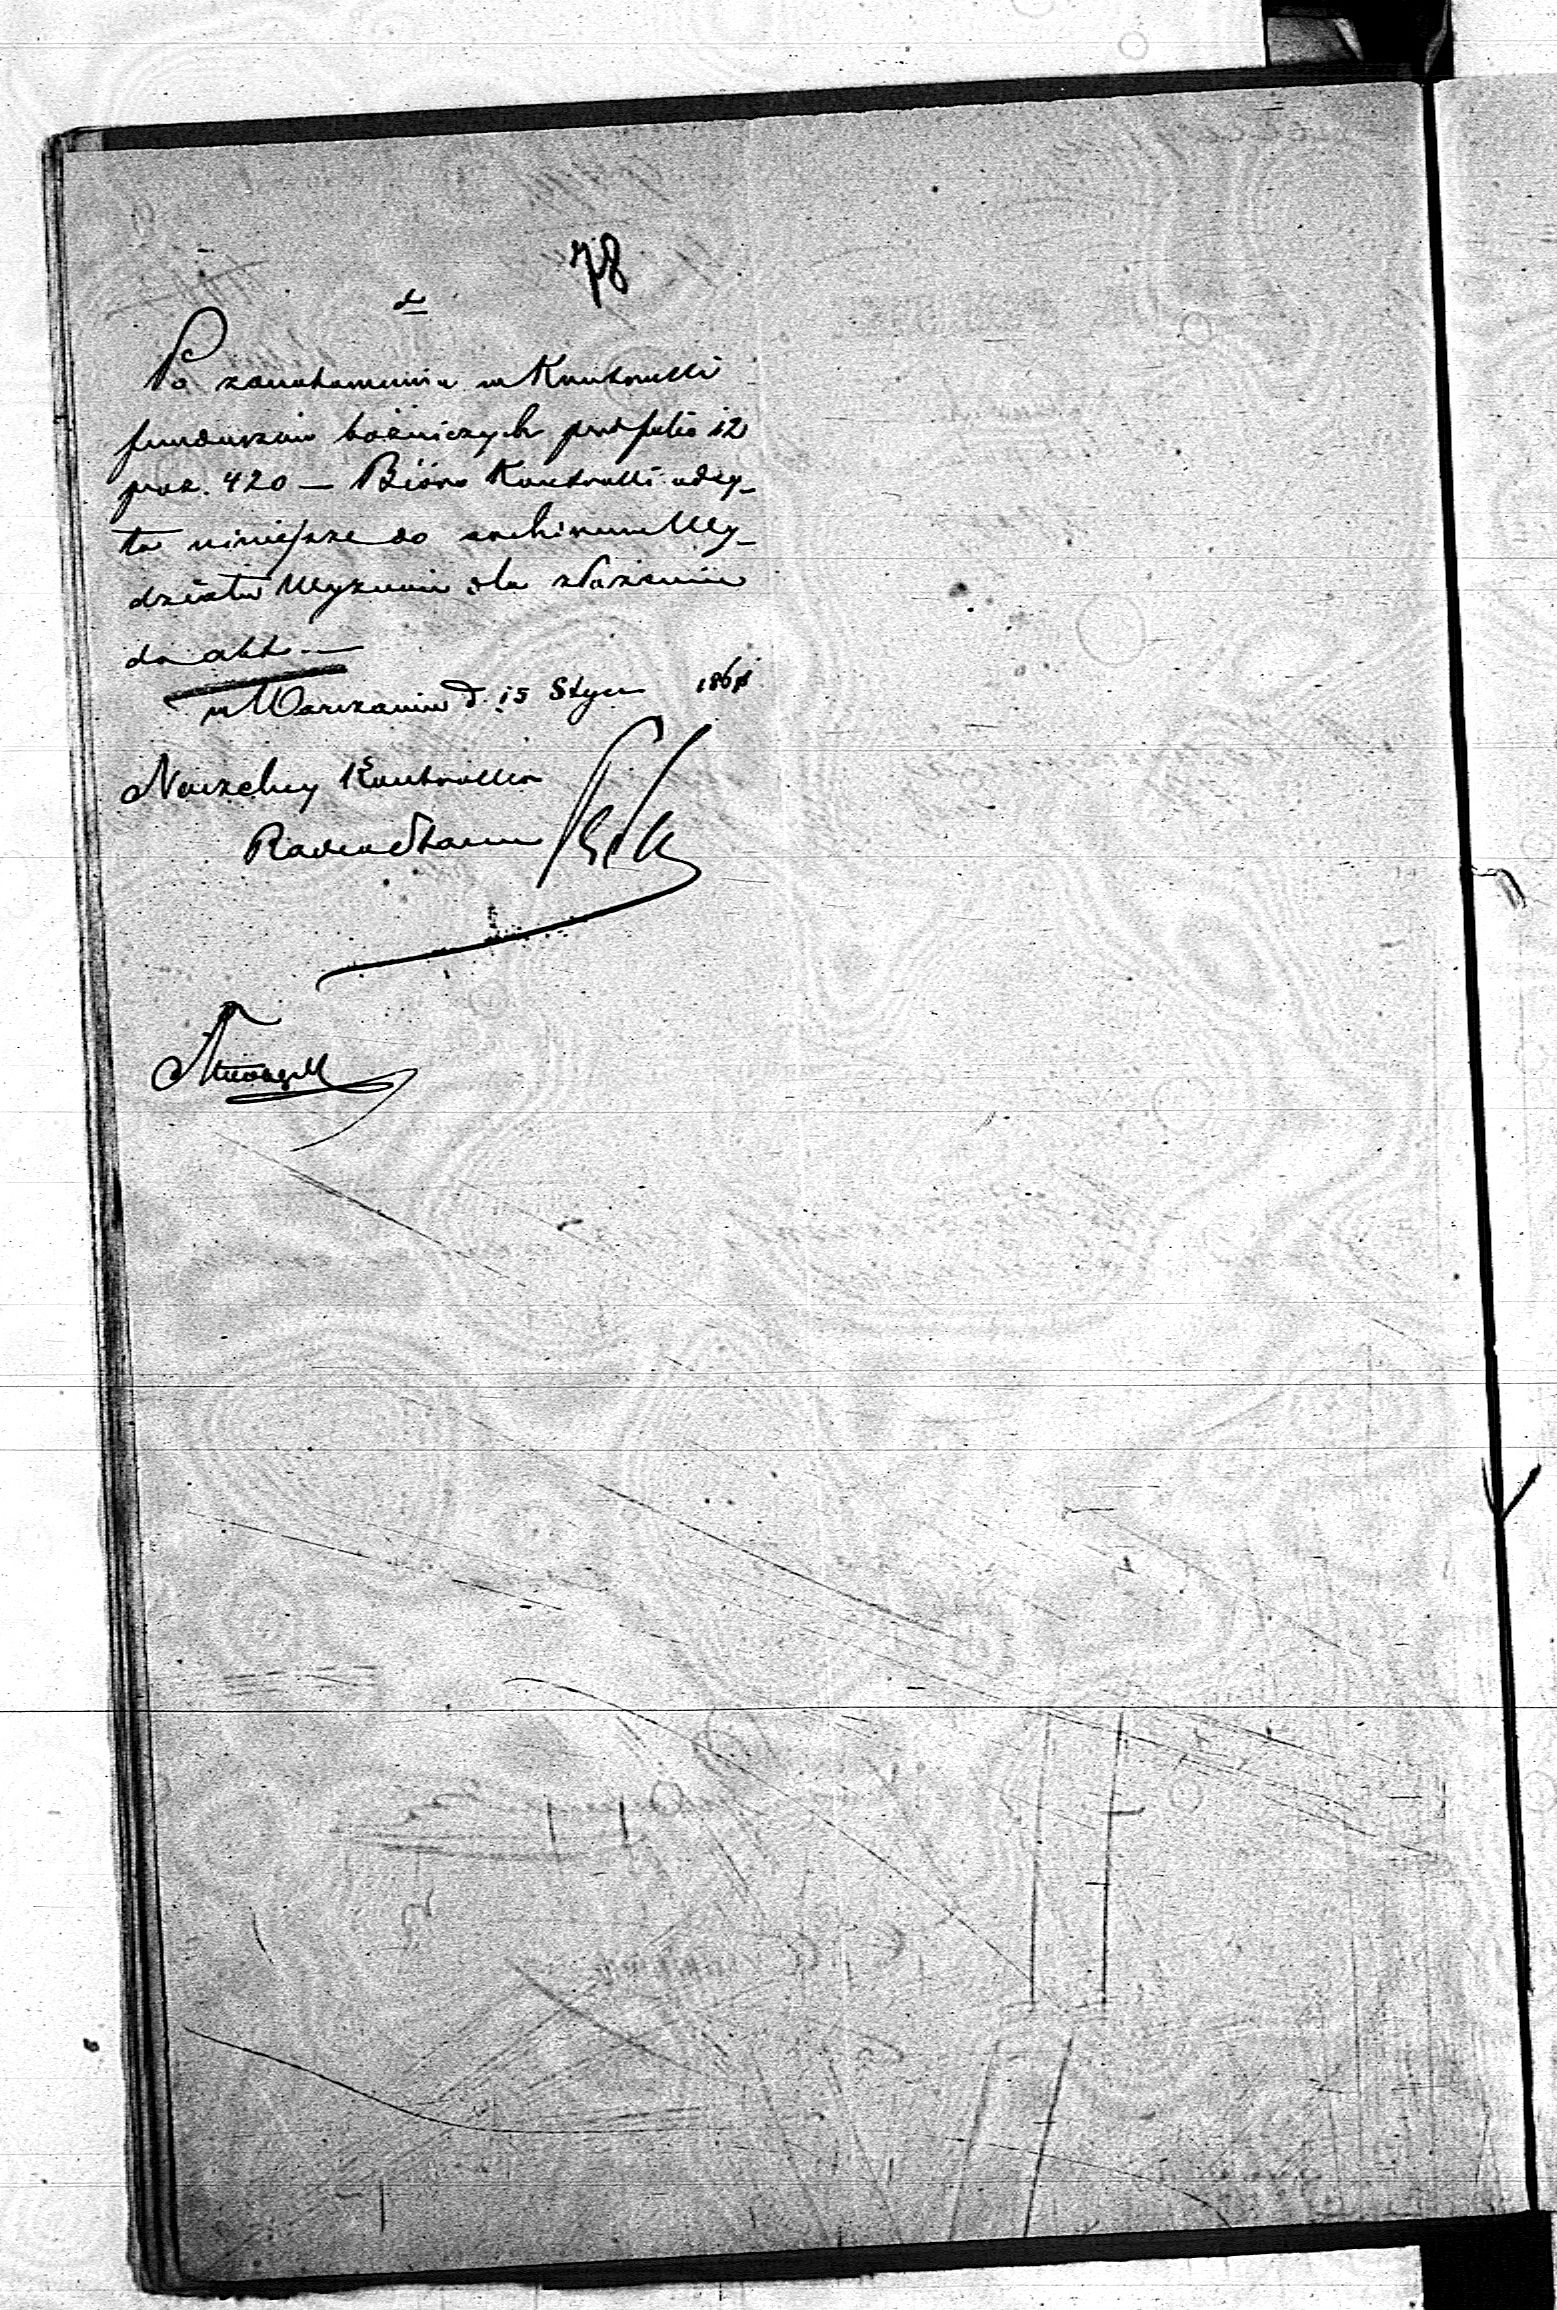 78
Po zanotowaniu w Kontrolli
funduszów bóżniczych pod folio 12
poz. 420 — Bióro Kontrolli odsy-
ła niniejsze do archiwum Wy-
działu Wyznań dla złożenia
do akt. —
w Warszawie d. 15 Stycz 1861
Naczelny Kontroller
Radca Stanu